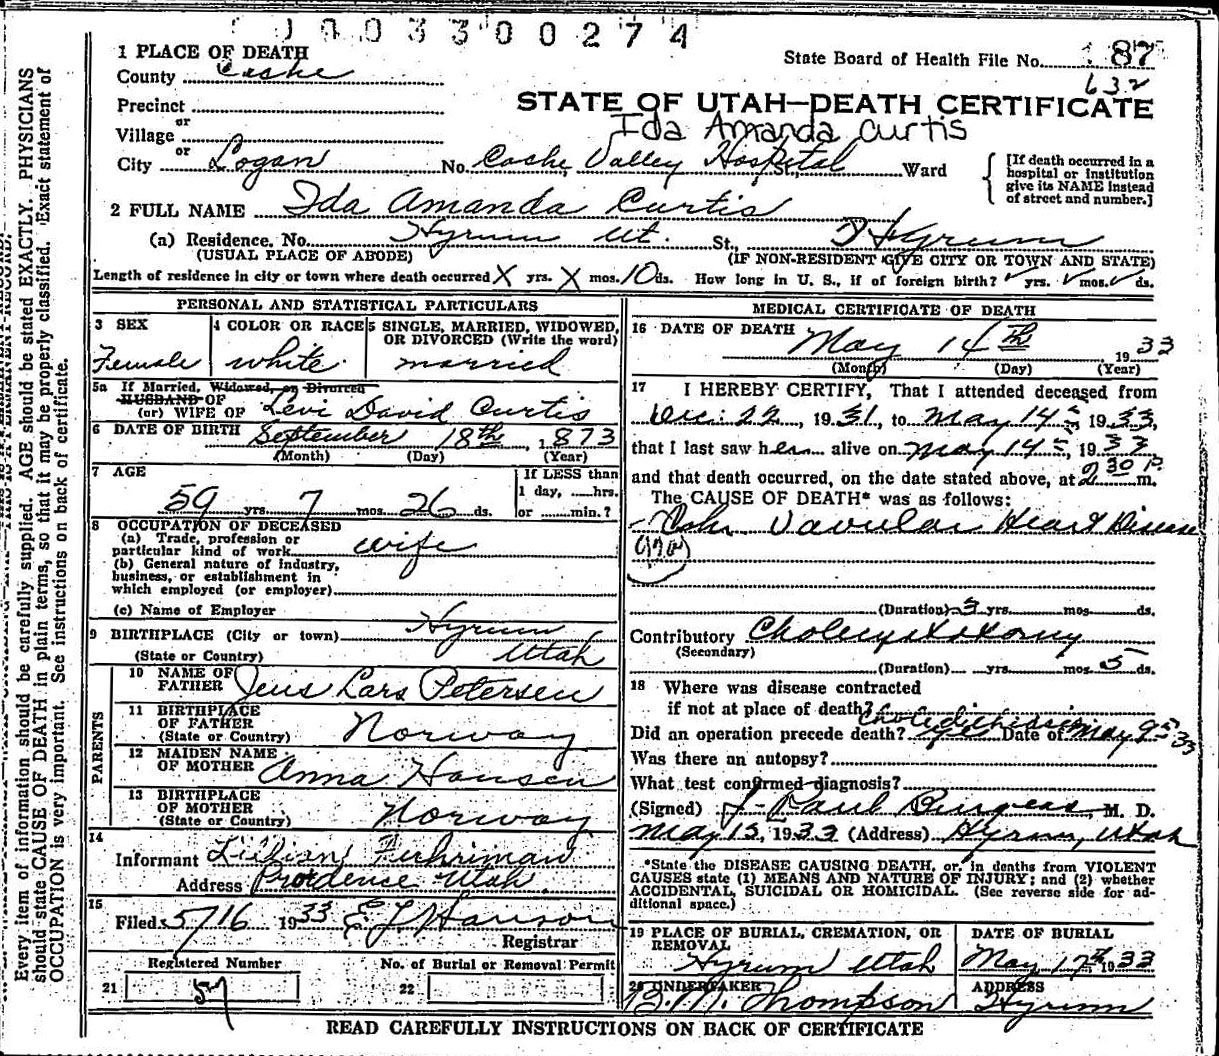 003300274
1 PLACE OF DEATH
County Cache
State Board of Health File No. 87
632
Precinct
or
Village
STATE OF UTAH—DEATH CERTIFICATE
Ida Amanda Curtis
or
City Logan No. Cache Valley Hospital St., Ward
[If death occurred in a hospital or institution give its NAME instead of street and number.]
2 FULL NAME Ida Amanda Curtis
(a) Residence. No. Hyrum Ut. St., Hyrum
(USUAL PLACE OF ABODE) (IF NON-RESIDENT GIVE CITY OR TOWN AND STATE)
Length of residence in city or town where death occurred X yrs. X mos. 10 ds. How long in U. S., if of foreign birth? yrs. mos. ds.
PERSONAL AND STATISTICAL PARTICULARS
3 SEX 4 COLOR OR RACE 5 SINGLE, MARRIED, WIDOWED, OR DIVORCED (Write the word)
Female white married
5a If Married, Widowed, or Divorced
HUSBAND OF
(or) WIFE OF Levi David Curtis
6 DATE OF BIRTH September 18th 1873
(Month) (Day) (Year)
7 AGE If LESS than
1 day, hrs.
59 yrs. 7 mos. 26 ds. or min.?
8 OCCUPATION OF DECEASED
(a) Trade, profession or
particular kind of work wife
(b) General nature of industry,
business, or establishment in
which employed (or employer)
(c) Name of Employer
9 BIRTHPLACE (City or town) Hyrum
(State or Country) Utah
PARENTS
10 NAME OF
FATHER Jens Lars Petersen
11 BIRTHPLACE
OF FATHER
(State or Country) Norway
12 MAIDEN NAME
OF MOTHER Anna Hansen
13 BIRTHPLACE
OF MOTHER
(State or Country) Norway
14
Informant Lilian Fuhriman
Address Providence Utah
15
Filed 5/16 1933 E L Hanson
Registrar
Registered Number No. of Burial or Removal Permit
21 57 22
MEDICAL CERTIFICATE OF DEATH
16 DATE OF DEATH May 14th 1933
(Month) (Day) (Year)
17 I HEREBY CERTIFY, That I attended deceased from
Dec. 22, 1931, to May 14, 1933,
that I last saw her alive on May 14, 1933
and that death occurred, on the date stated above, at 2 30 P m.
The CAUSE OF DEATH* was as follows:
Vavular Heart Disease
(Duration) 3 yrs. mos. ds.
Contributory
(Secondary)
(Duration) yrs. mos. 5 ds.
18 Where was disease contracted
if not at place of death?
Did an operation precede death? yes Date of May 9 33
Was there an autopsy?
What test confirmed diagnosis?
(Signed) J Paul Burgess, M. D.
May 15, 1933 (Address) Hyrum, Utah
*State the DISEASE CAUSING DEATH, or in deaths from VIOLENT
CAUSES state (1) MEANS AND NATURE OF INJURY; and (2) whether
ACCIDENTAL, SUICIDAL OR HOMICIDAL. (See reverse side for ad-
ditional space.)
19 PLACE OF BURIAL, CREMATION, OR REMOVAL DATE OF BURIAL
Hyrum Utah May 17th 1933
20 UNDERTAKER ADDRESS
B. M. Thompson Hyrum
READ CAREFULLY INSTRUCTIONS ON BACK OF CERTIFICATE
Every item of information should be carefully supplied. AGE should be stated EXACTLY. PHYSICIANS
should state CAUSE OF DEATH in plain terms, so that it may be properly classified. Exact statement of
OCCUPATION is very important. See instructions on back of certificate.